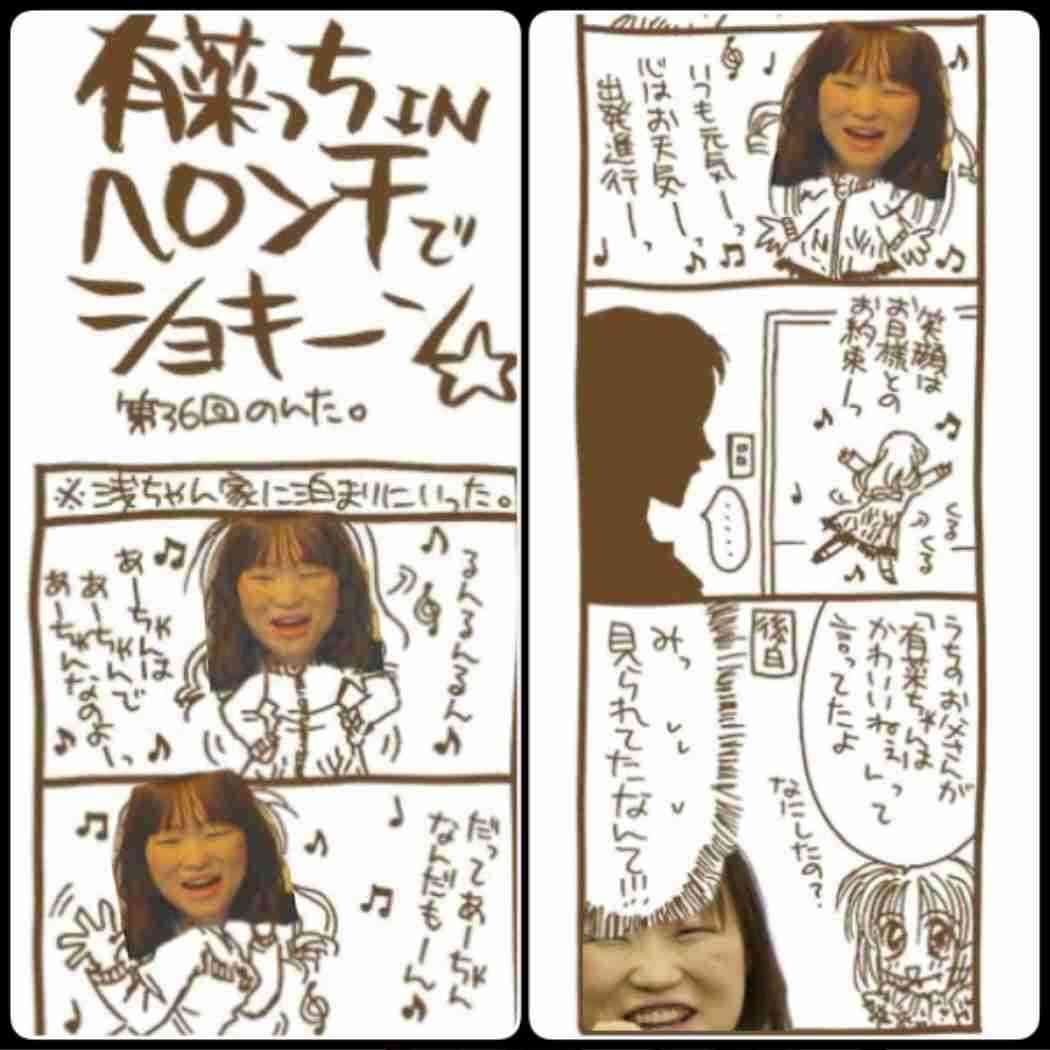 有菜っちIN
ペンチで
ショキーン☆
第36回のんた。
※浅ちゃん家に泊まりにいった。
るんるんるんるん
あーちゃんは
あーちゃんで
あーちゃんなのよーっ
だってあーちゃん
なんだもーん
いつも元気ーっ
心はお天気ーっ
出発進行ーっ
笑顔は
お日様との
お約束ーっ
くるくる
……
後日
うちのお父さんが
「有菜ちゃんは
かわいいねぇ」って
言ってたよ
なにしたの?
みっ
見られてたなんて!!!